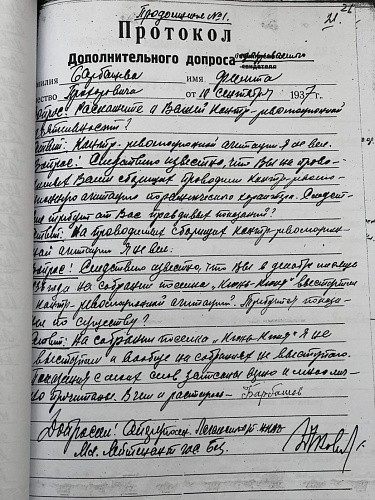 Продолжение №1.
21
Протокол
Дополнительного допроса обвиняемого свидетеля
фамилия Барбашева имя Филипа
отчество Прохоровича от "10" сентября 1937 г.
Вопрос! Расскажите о Вашей контр-революционной
деятельности?
Ответ: Контр. революционной агитации я не вел.
Вопрос! Следствию известно, что Вы на прово-
димых Вами сборищах проводили контр-рево-
люционную агитацию пораженческого характера. Следст-
вие требует от Вас правдивых показаний?
Ответ: На проводимых сборищах контр-революцион-
ной агитации я не вел.
Вопрос! Следствию известно, что Вы в декабре месяце
года на собрании поселка выступали
контр-революционной агитацией. Требуется показа-
ния по существу?
Ответ: На собрании поселка я не
выступал и вообще на собраниях не выступаю.
Показания с моих слов записаны верно и мною лич-
но прочитаны. В чем и расписуюсь - Барбашов
Допросил!
Мл. Лейтенант гос без.